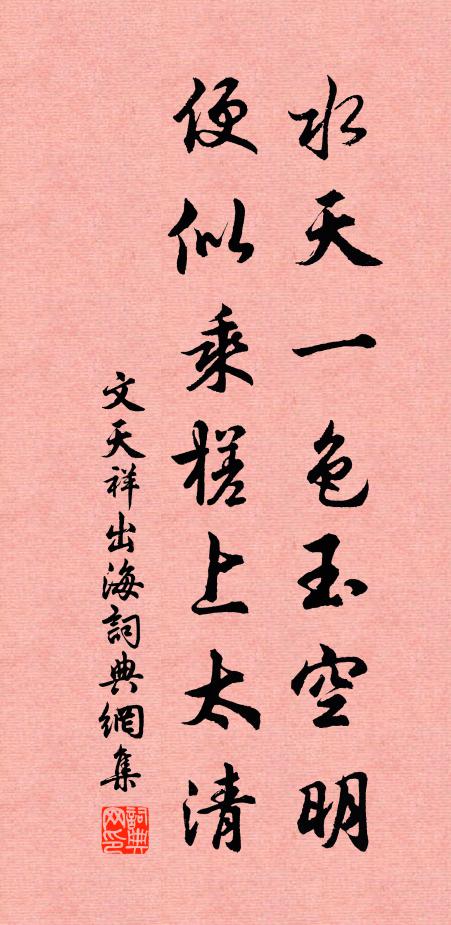 水天一色玉空明
便似乘槎上太清
文天祥出海詞典網集
詞典網印